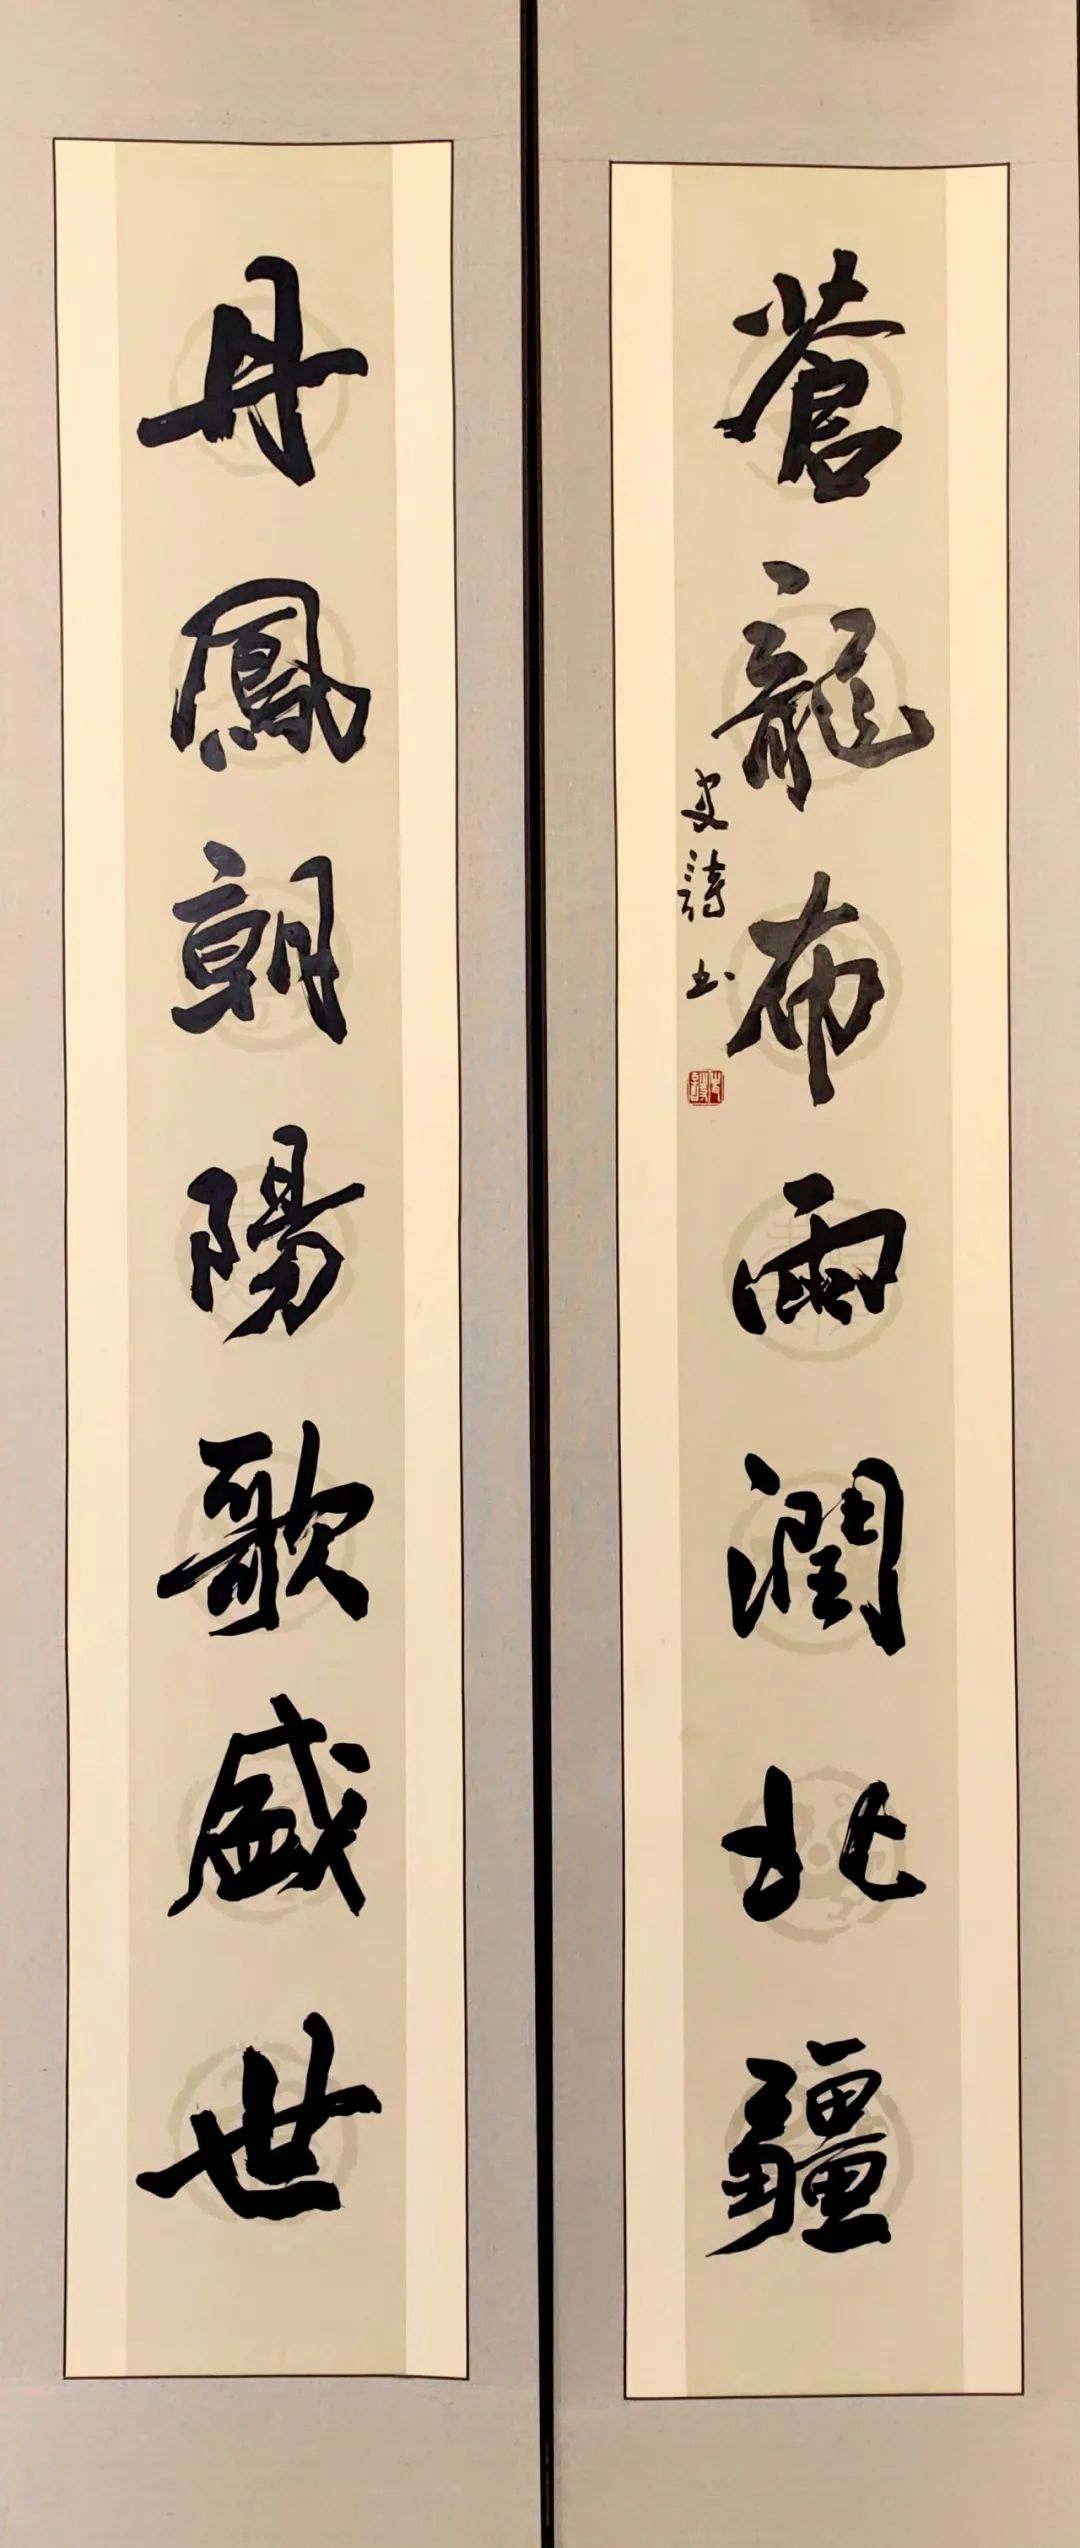 丹鳳朝陽歌盛世
蒼龍布雨潤北疆
史詩书